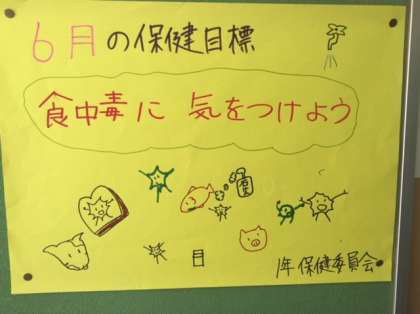 6月の保健目標
食中毒に 気をつけよう
1年 保健委員会